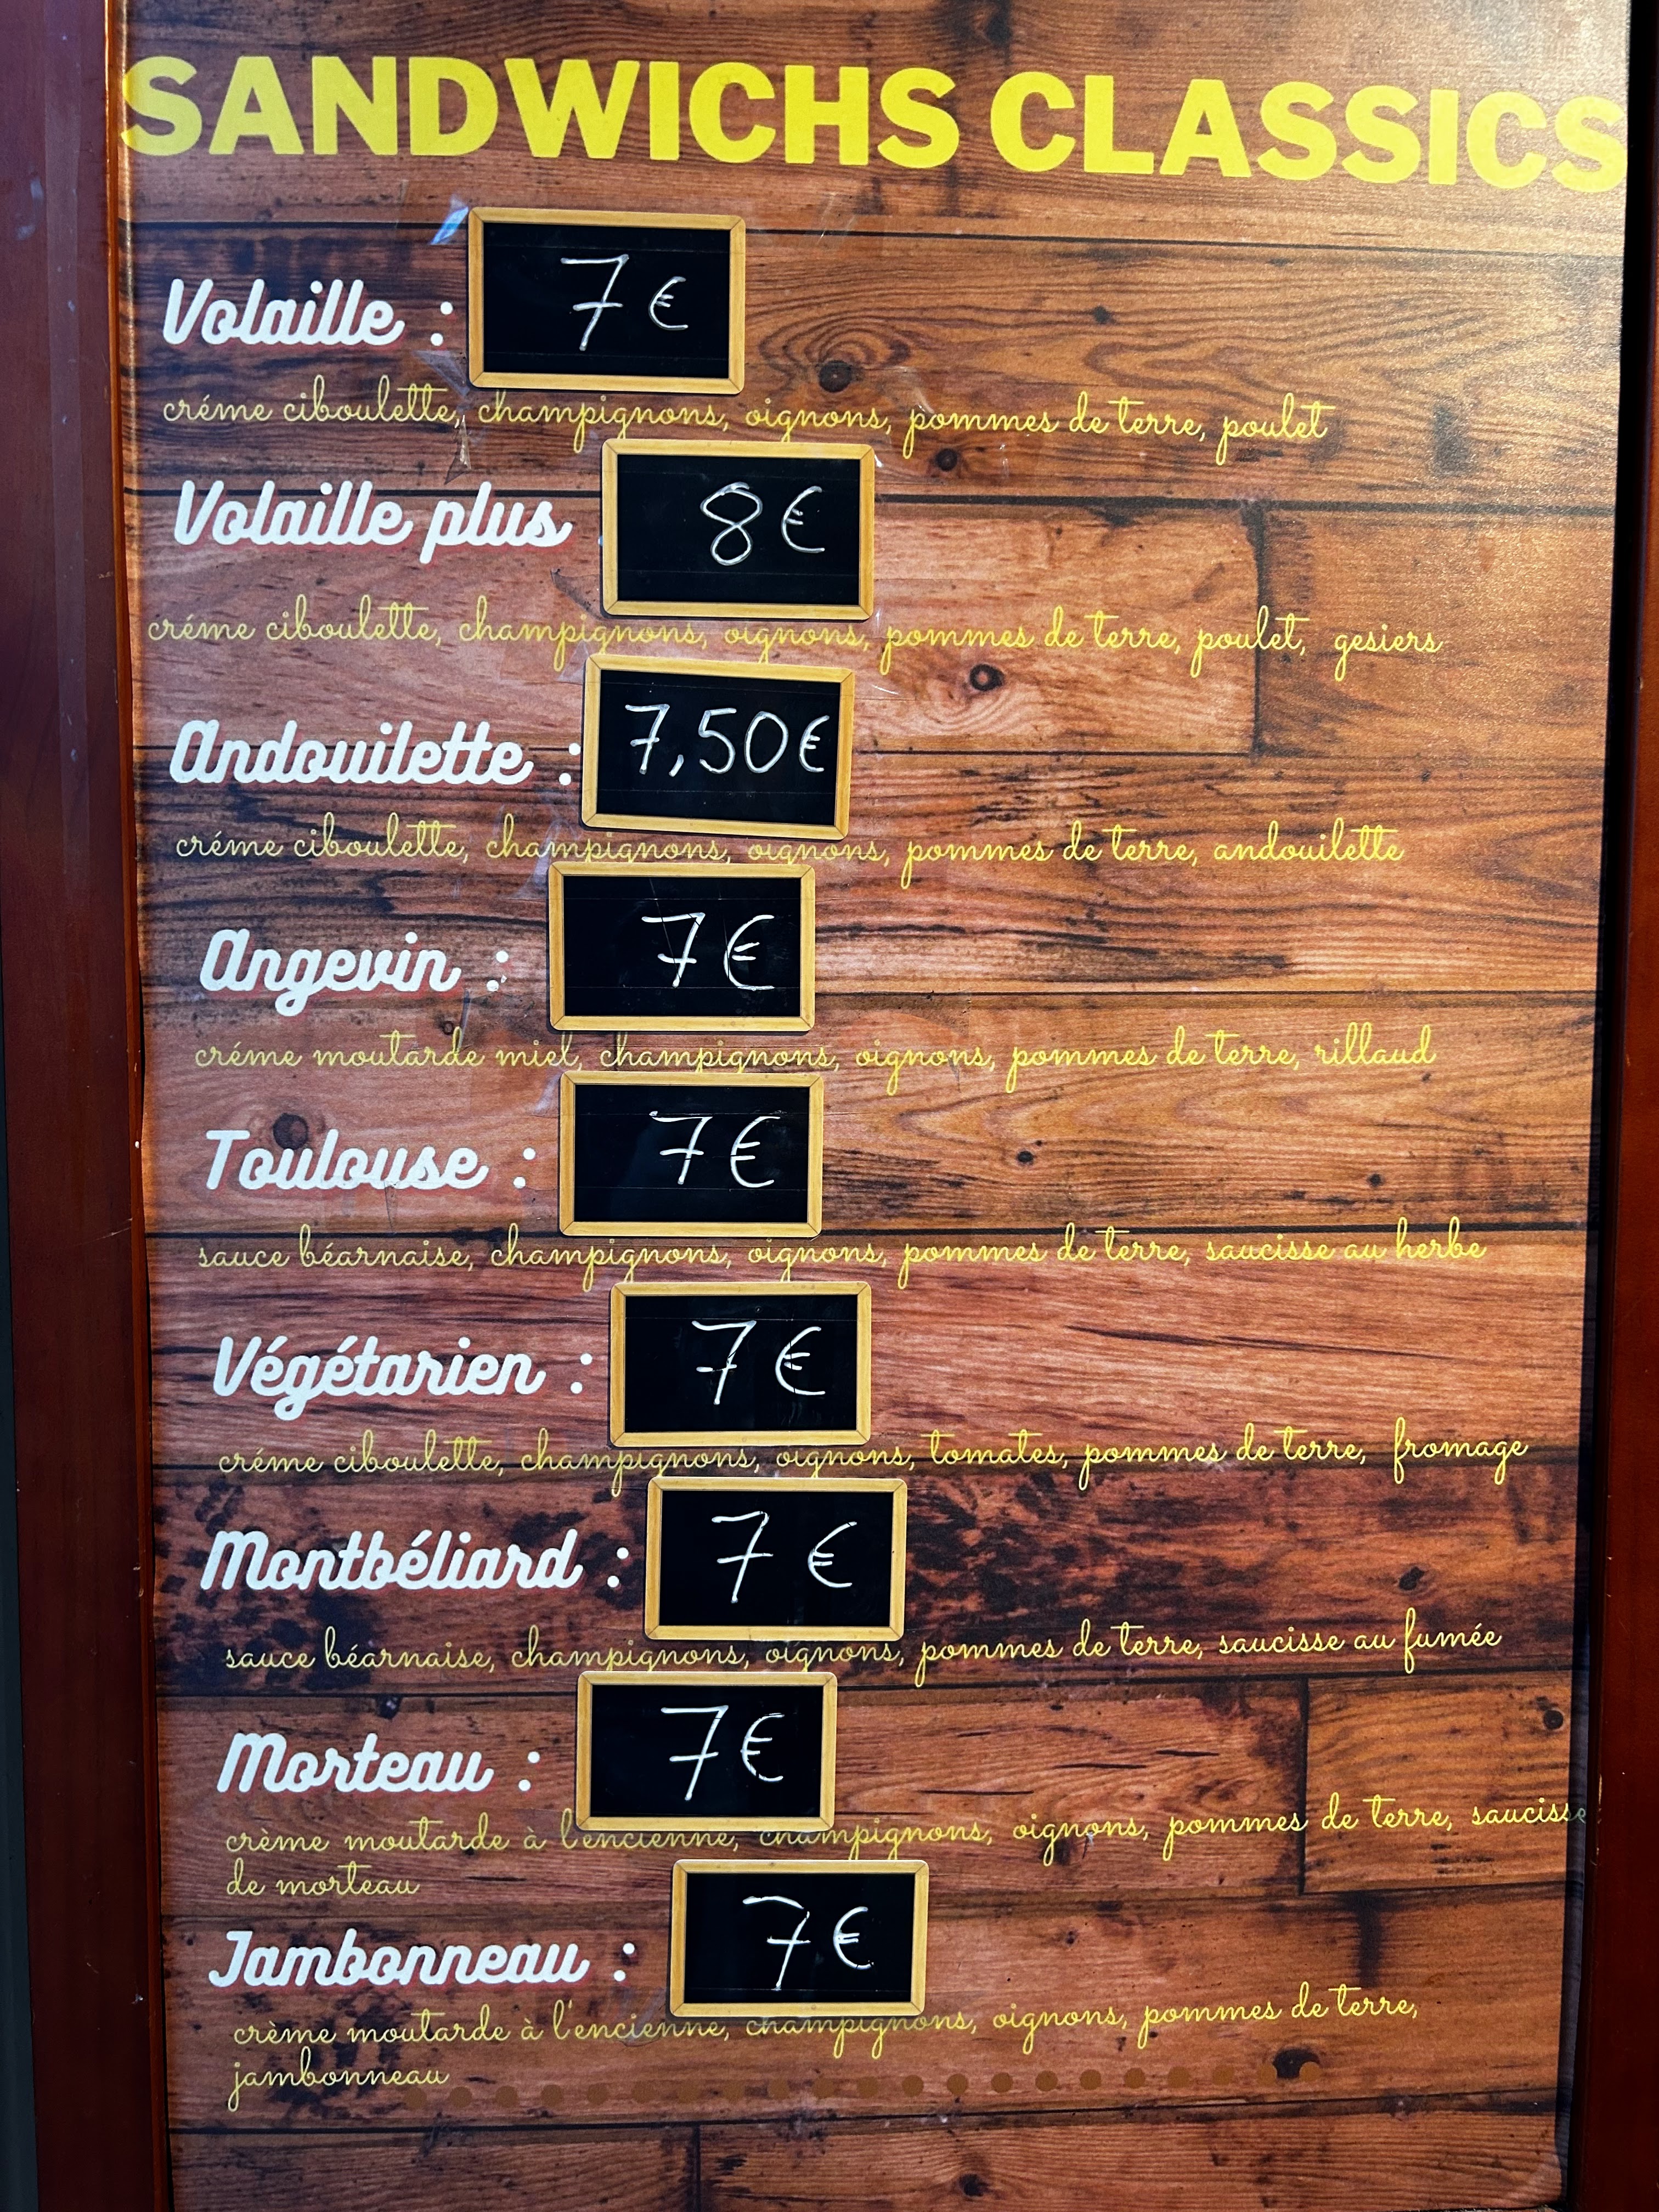 SANDWICHS CLASSICS
Volaille : 7€
créme ciboulette, champignons, oignons, pommes de terre, poulet
Volaille plus 8€
créme ciboulette, champignons, oignons, pommes de terre, poulet, gesiers
Andouilette : 7,50€
créme ciboulette, champignons, oignons, pommes de terre, andouilette
Angevin : 7€
créme moutarde miel, champignons, oignons, pommes de terre, rillaud
Toulouse : 7€
sauce béarnaise, champignons, oignons, pommes de terre, saucisse au herbe
Végétarien : 7€
créme ciboulette, champignons, oignons, tomates, pommes de terre, fromage
Montbéliard : 7€
sauce béarnaise, champignons, oignons, pommes de terre, saucisse au fumée
Morteau : 7€
crème moutarde à l'encienne, champignons, oignons, pommes de terre, saucisse
de morteau
Jambonneau : 7€
crème moutarde à l'encienne, champignons, oignons, pommes de terre,
jambonneau